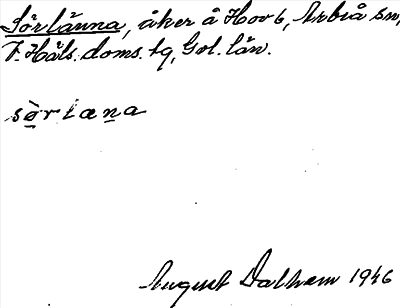 Sörlänna, åker å Hov 6, Arbrå sn,
V. Häls. doms. tg, Gvl. län.
sö̀rlæna
August Dalhem 1946